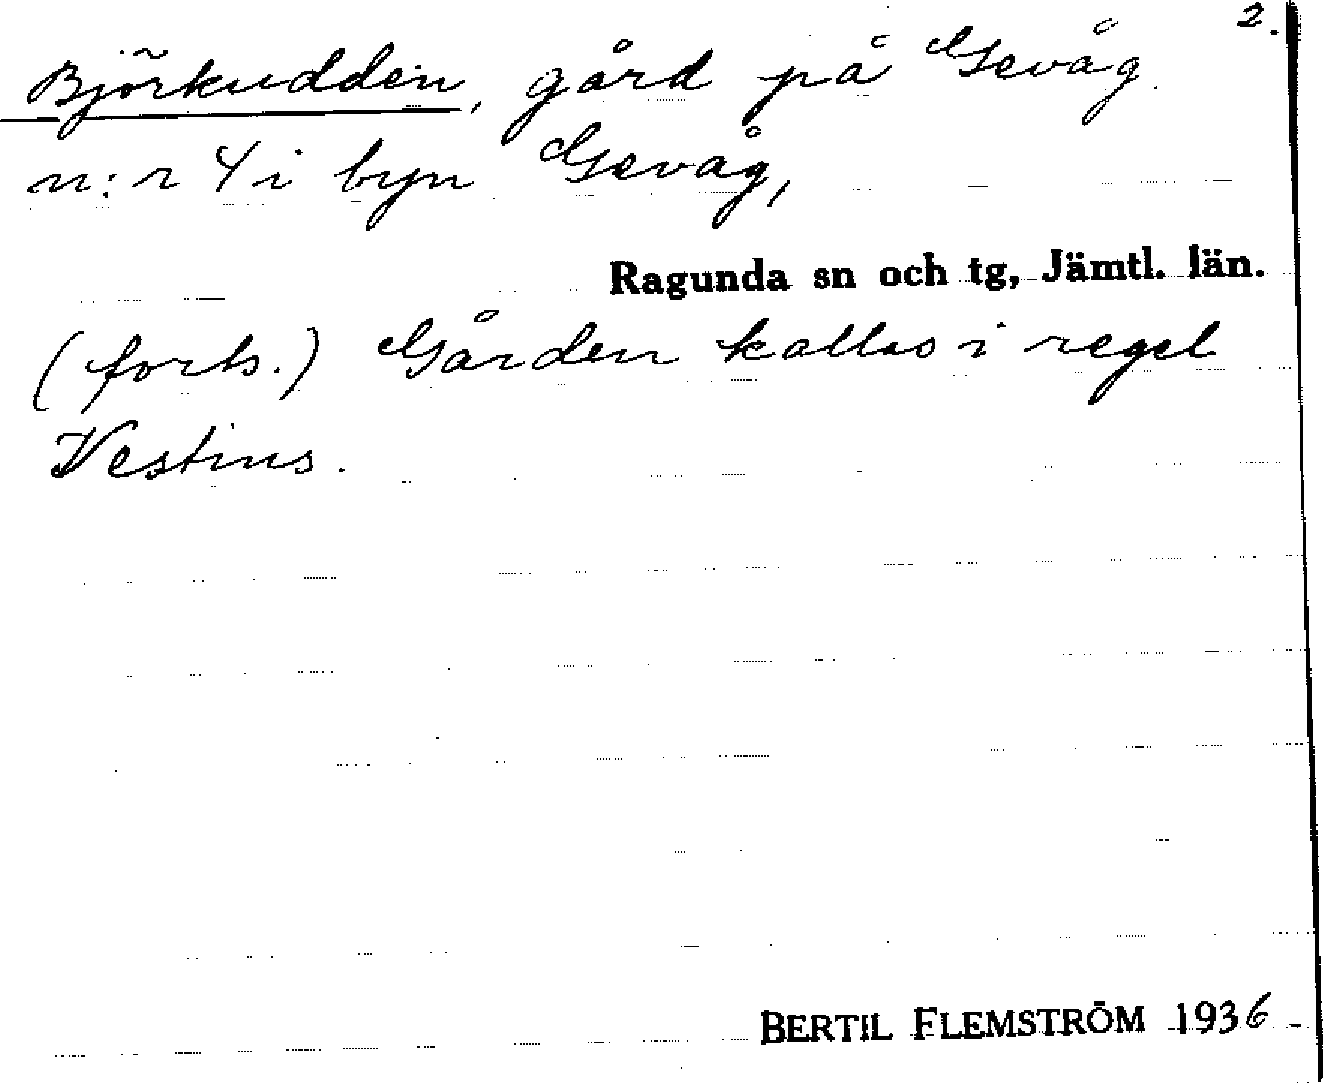 2.
Björkudden, gård på Gevåg
n:r 4 i byn Gevåg,
Ragunda sn och tg, Jämtl. län.
(forts.) Gården kallas i regel
Vestins.
BERTIL FLEMSTRÖM 1936